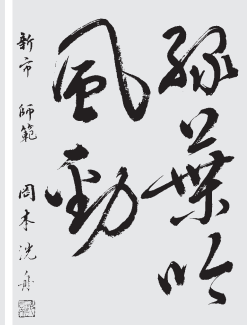 緑葉吟
風動
新市 師範 岡本洸舟